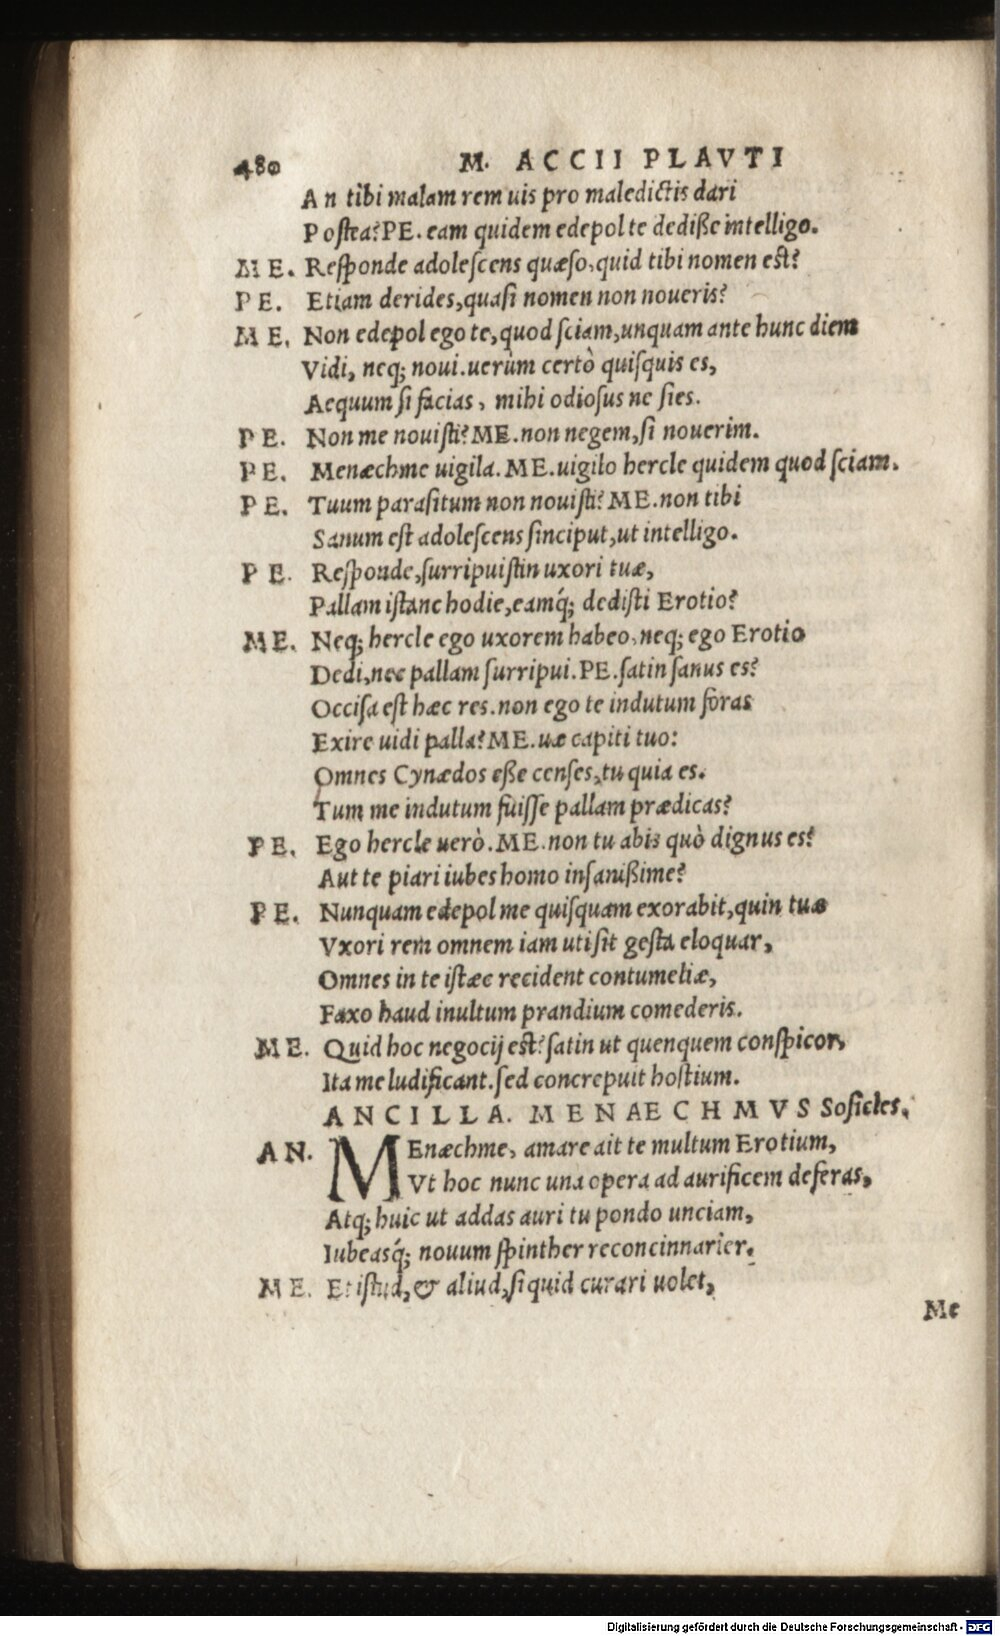 480 M. ACCII PLAVTI
An tibi malam rem uis pro maledictis dari
Postea? PE. eam quidem edepol te dediße intelligo.
ME. Responde adolescens quæso, quid tibi nomen est?
PE. Etiam derides, quasi nomen non noueris?
ME. Non edepol ego te, quod sciam, unquam ante hunc diem
Vidi, neq; noui. uerùm certò quisquis es,
Aequum si facias, mihi odiosus ne sies.
PE. Non me nouisti? ME. non negem, si nouerim.
PE. Menæchme uigila. ME. uigilo hercle quidem quod sciam.
PE. Tuum parasitum non nouisti? ME. non tibi
Sanum est adolescens sinciput, ut intelligo.
PE. Responde, surripuistin uxori tuæ,
Pallam istanc hodie, eamq́; dedisti Erotio?
ME. Neq; hercle ego uxorem habeo, neq; ego Erotio
Dedi, nec pallam surripui. PE. satin sanus es?
Occisa est hæc res. non ego te indutum foras
Exire uidi palla? ME. uæ capiti tuo:
Omnes Cynædos eße censes, tu quia es.
Tum me indutum fuisse pallam prædicas?
PE. Ego hercle uerò. ME. non tu abis quò dignus es?
Aut te piari iubes homo insanißime?
PE. Nunquam edepol me quisquam exorabit, quin tuæ
Vxori rem omnem iam uti sit gesta eloquar,
Omnes in te istæc recident contumeliæ,
Faxo haud inultum prandium comederis.
ME. Quid hoc negocij est? satin ut quenquem conspicor,
Ita me ludificant. sed concrepuit hostium.
ANCILLA. MENAECHMVS Sosicles.
AN. MEnæchme, amare ait te multum Erotium,
Vt hoc nunc una opera ad aurificem deferas,
Atq; huic ut addas auri tu pondo unciam,
Iubeasq́; nouum spinther reconcinnarier.
ME. Et istud, & aliud, si quid curari uolet,
Me
Digitalisierung gefördert durch die Deutsche Forschungsgemeinschaft - DFG